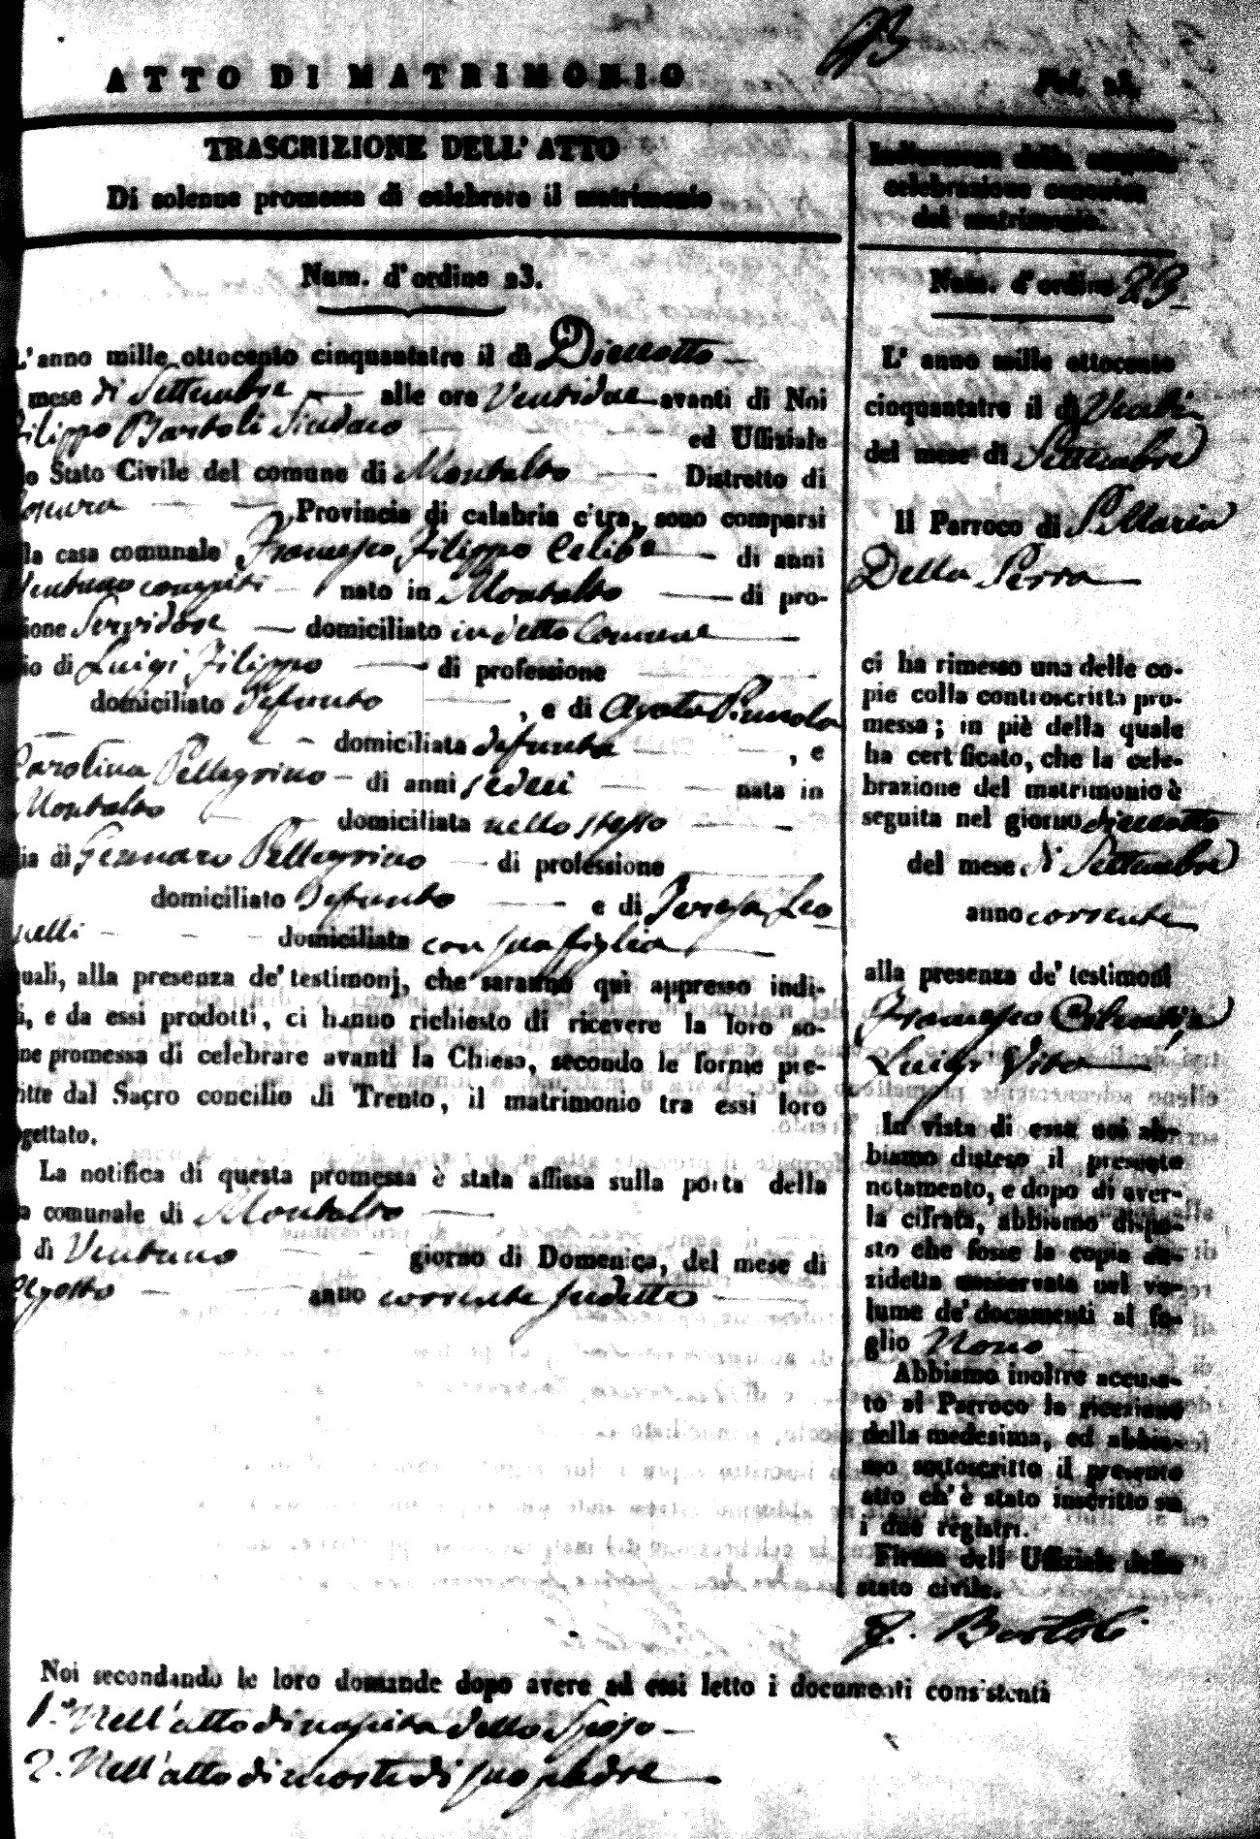 93
ATTO DI MATRIMONIO
Fol.
TRASCRIZIONE DELL' ATTO
Di solenne promessa di celebrare il matrimonio
Num. d'ordine 23.
L'anno mille ottocento cinquantatre il dì Dieciotto
mese di Settembre alle ore Ventidue avanti di Noi
Filippo Bartoli Sindaco ed Uffiziale
o Stato Civile del comune di Montalto Distretto di
Provincia di calabria citra, sono comparsi
la casa comunale Francesco Filippo Celibe di anni
Ventuno compiti nato in Montalto di pro-
ione Servidore domiciliato in detto Comune
io di Luigi Filippo di professione
domiciliato defunto , e di Agata
domiciliata defunta , e
Carolina Pellegrino di anni sedeci nata in
Montalto domiciliata nello stesso
ia di Gennaro Pellegrino di professione
domiciliato Defunto e di Teresa Leo
nelli domiciliata con sua figlia
uali, alla presenza de' testimonj, che saranno quì appresso indi-
i, e da essi prodotti, ci hanno richiesto di ricevere la loro so-
ne promessa di celebrare avanti la Chiesa, secondo le forme pre-
itte dal Sacro concilio di Trento, il matrimonio tra essi loro
gettato.
La notifica di questa promessa è stata affissa sulla porta della
a comunale di Montalto
dì Ventuno giorno di Domenica, del mese di
Agosto anno corrente sudetto
Indicazione della seguita
celebrazione canonica
del matrimonio.
Num. d'ordine 23
L' anno mille ottocento
cinquantatre il dì Venti
del mese di Settembre
Il Parroco di S. Maria
Della Serra
ci ha rimesso una delle co-
pie colla controscritta pro-
messa; in piè della quale
ha certificato, che la cele-
brazione del matrimonio è
seguita nel giorno dieciotto
del mese di Settembre
anno corrente
alla presenza de' testimoni
Francesco
Luigi Vito
In vista di essa noi ab-
biamo disteso il presente
notamento, e dopo di aver-
la cifrata, abbiamo dispo-
sto che fosse la copia an-
zidetta conservata nel vo-
lume de' documenti al fo-
glio Nono
Abbiamo inoltre accusa-
to al Parroco la ricezione
della medesima, ed abbia-
mo sottoscritto il presente
atto ch' è stato inscritto su
i due registri.
Firma dell' Uffiziale dello
stato civile.
F. Bartoli
Noi secondando le loro domande dopo avere ad essi letto i documenti consistenti
1.º Nell'atto di nascita dello Sposo
2. Nell'atto di morte di suo padre